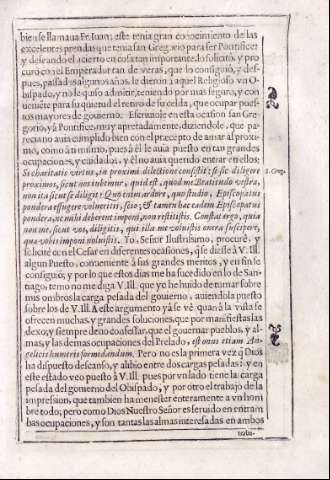 bien se llamaua Fr. Iuan; este tenia gran conocimiento de las
excelentes prendas que tenia san Gregorio para ser Pontifice;
y deseando el acierto en cosa tan importante, lo solicitò, y pro
curò con el Emperador tan de veras, que lo consiguiò, y des-
pues, passados algunos años, le dieron à aquel Religioso vn O-
bispado, y no le quiso admitir, teniendo por mas seguro, y con
ueniẽte para su quietud el retiro de su celda, que ocupar pues-
tos mayores de gouierno. Escriuiole en esta ocasion san Gre-
gorio, yà Pontifice, muy apretadamente, diziendole, que pa-
recia no auia cumplido bien con el precepto de amar al proxi-
mo, como à si mismo, pues à èl le auia puesto en tan grandes
ocupaciones, y cuidados, y èl no auia querido entrar en ellos:
Si charitatis virtus, in proximi dilectione consistit; si sic diligere
proximos, sicut nos iubemur, quid est, quod me Beatitudo vestra,
non ita sicut se diligit: Quo enim ardore, quo studio, Episcopatus
pondera effugere volueritis, scio; & tamen hæc eadem Episcopatus
pondera, ne mihi deberent imponi, non restitistis. Constat ergo, quia
non me, sicut vos, diligitis, qui illa me voluistis onera suscipere,
quæ vobis imponi noluistis. Yo, Señor Ilustrissimo, procurè, y
solicitè con el Cesar en diferentes ocasiones, q̃ se diesse à V. Ill.
algun Puesto, conueniente à sus grandes meritos, y en fin se
consiguiò; y por lo que estos dias me ha sucedido en lo de San-
tiago, temo no me diga V. Ill. que yo he huido de tomar sobre
mis ombros la carga pesada del gouierno, auiendola puesto
sobre los de V. Ill. A este argumento yà se vè quan à la vista se
ofrecen muchas, y grandes soluciones, que por manifiestas las
dexo, y siempre deuo confessar, que el gouernar pueblos, y al-
mas, y las demas ocupaciones del Prelado, est onus etiam An-
gelicis humeris formidandum. Pero no es la primera vez q̃ Dios
ha dispuesto descanso, y aliuio entre dos cargas pesadas: y en
este estado veo puesto à V. Ill. pues por vn lado tiene la carga
pesada del gouierno del Obispado, y por otro el trabajo de la
impression, que tambien ha menester enteramente à vn hom
bre todo; pero como Dios Nuestro Señor es seruido en entram
bas ocupaciones, y son tantas las almas interesadas en ambos
traba-
S. Greg.